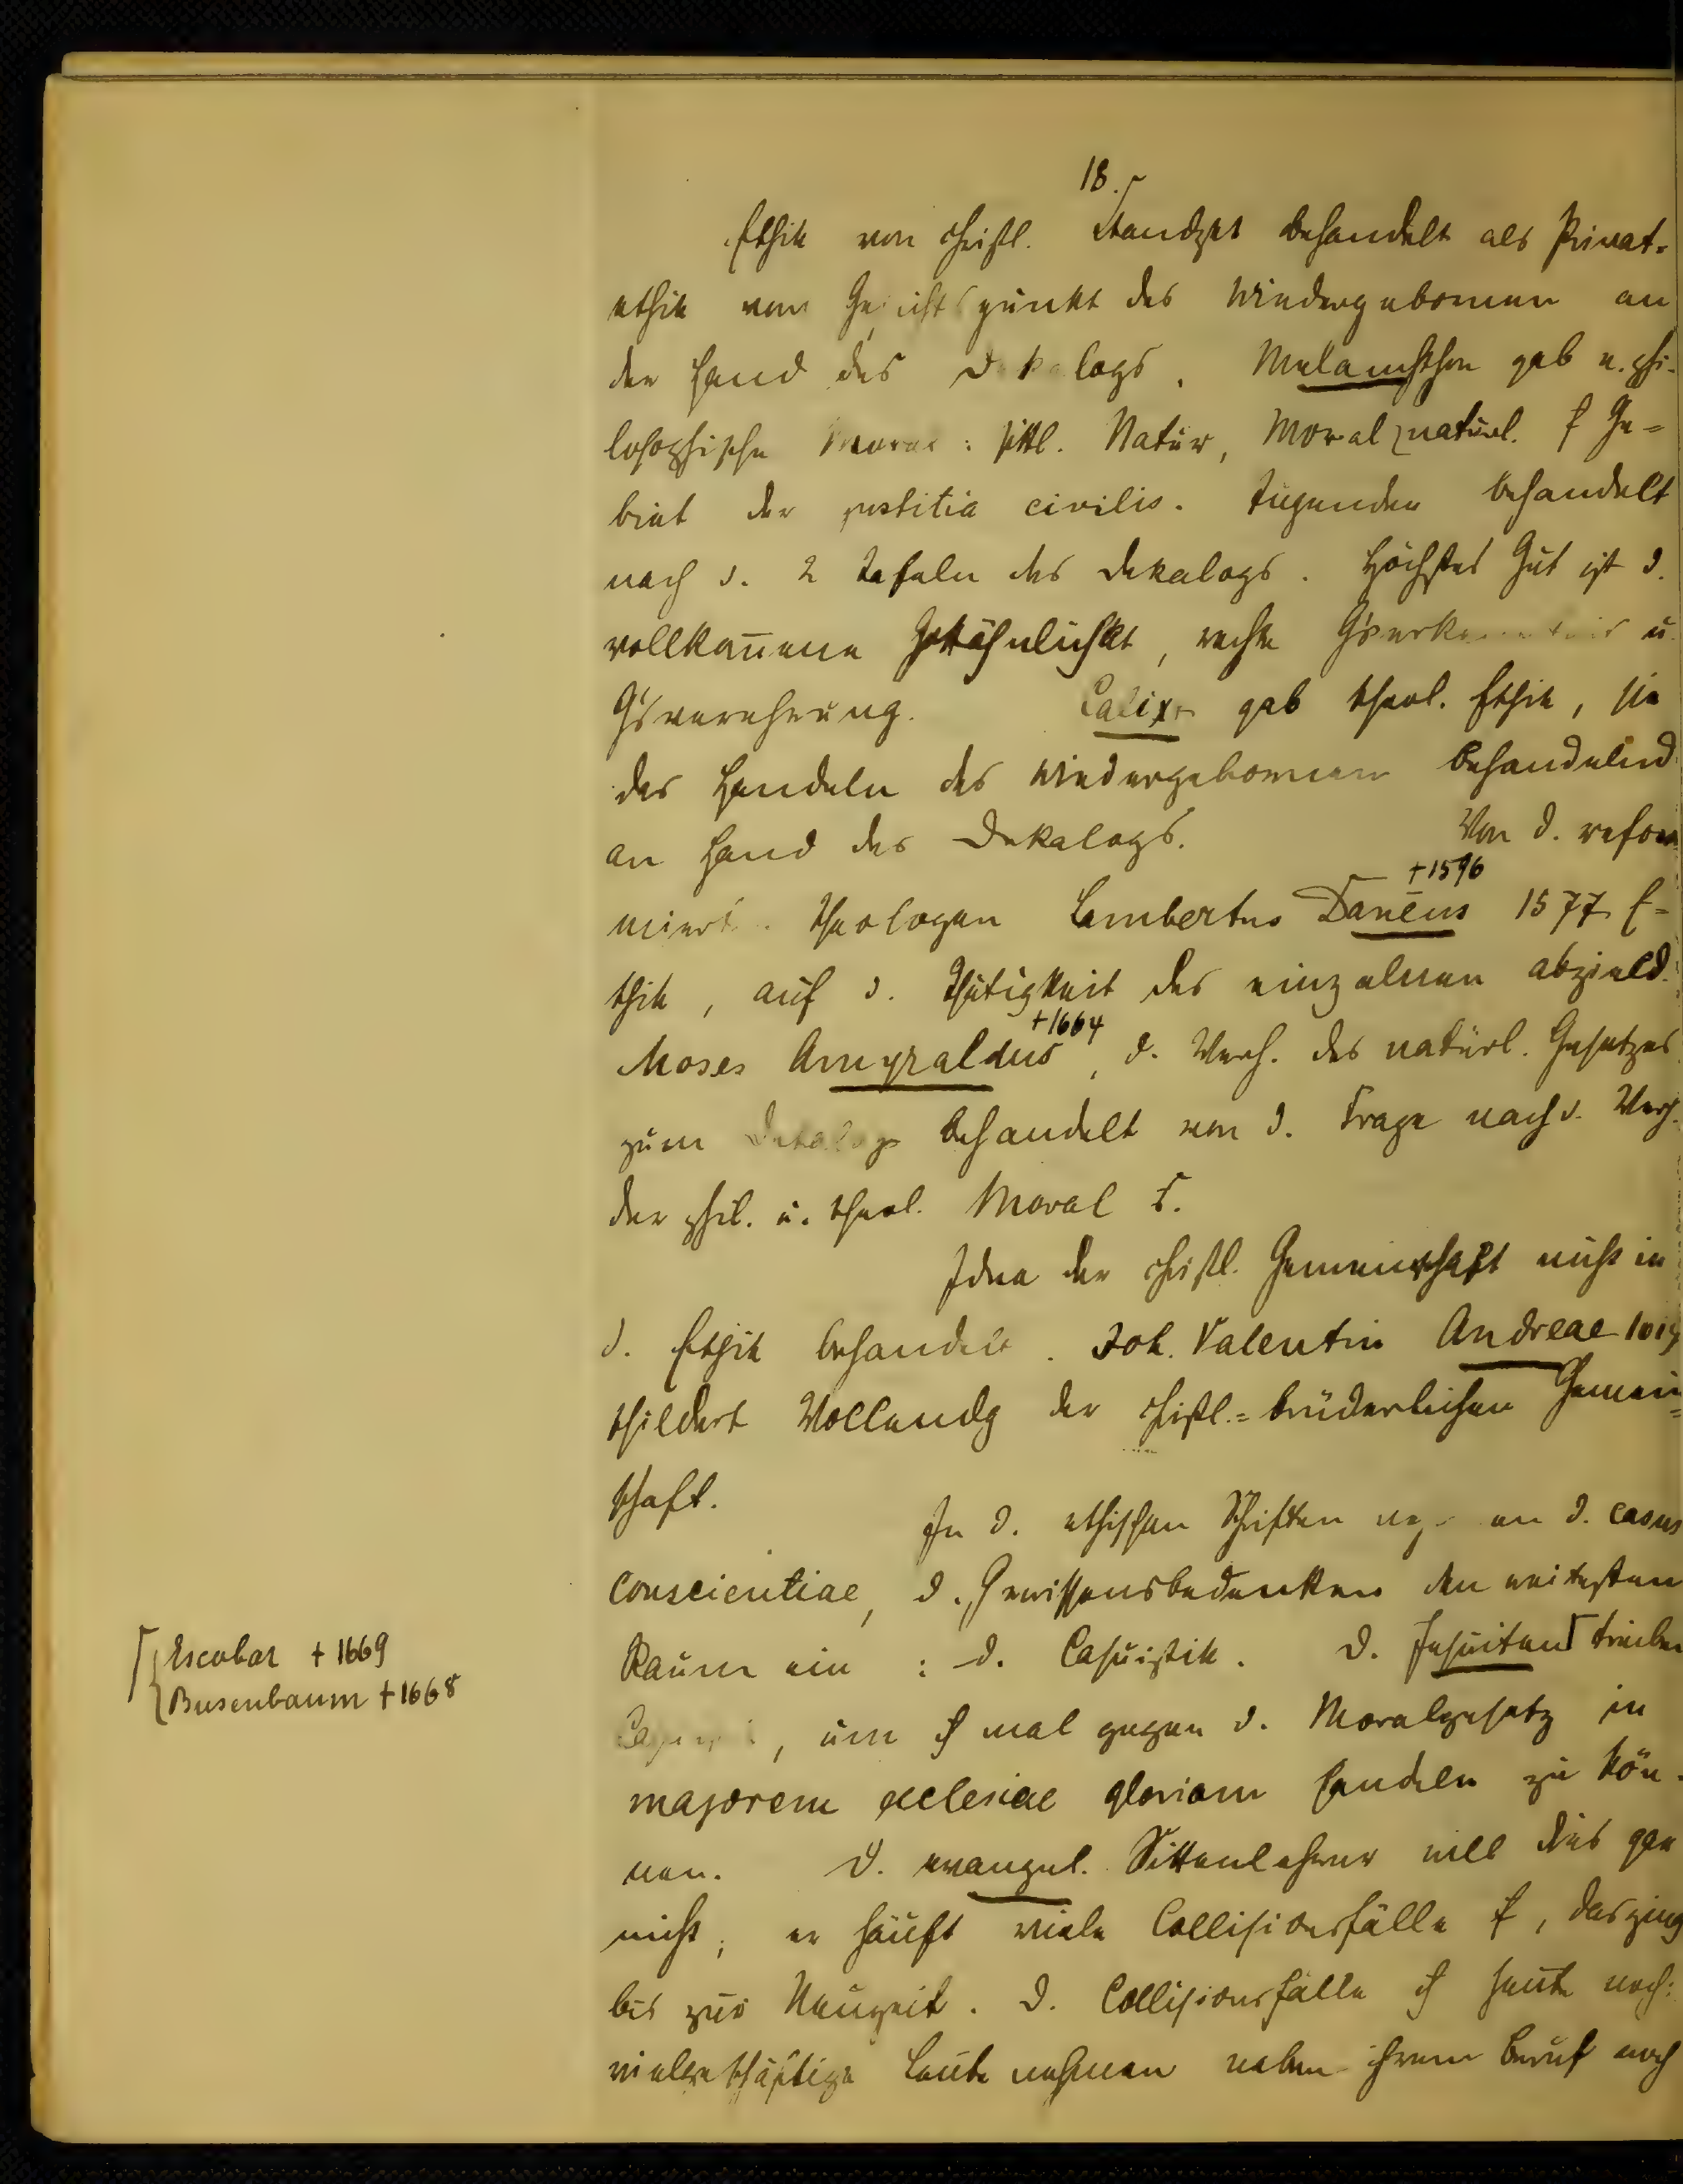 18.
Ethik von christl. Standpkt behandelt als Privat-
ethik vom Gesichtspunkt des Wiedergebornen an
der Hand des Dekalogs. Melanchthon gab e. phi-
losophische Moral: sittl. Natur, Moral natürl. Ge-
biet der justitia civilis. Tugenden behandelt
nach d. 2 Tafeln des Dekalogs. Höchstes Gut ist d.
vollkom̅ene Gottähnlichkt, rechte Gserkenntnis u.
Gsverehrung. Calixt gab theol. Ethik, sie
das Handeln des Wiedergebornen behandelnd
an Hand des Dekalogs. Von d. refor
miert. Theologen Lambertus Danëus +1596 1577 E-
thik, auf d. Thätigkeit des einzelnen abzield.
Moses Amyraldus +1664, d. Verh. des natürl. Gesetzes
zum Dekalog behandelt von d. Frage nach d. Verh.
der phil. u. theol. Moral
Idee der christl. Gemeinschaft nicht in
d. Ethik behandelt. Joh. Valentin Andreae
schildert Vollendg der christl.=brüderlichen Gemein=
schaft.
In d. ethischen Schriften an d. casus
conscientiae, d. Gewissensbedenken den weitesten
Raum ein: d. Casuistik. D. Jesuiten trieben
Escobar +1669
Busenbaum +1668
, um mal gegen d. Moralgesetz in
majorem ecclesiae gloriam handeln zu kön-
nen. D. evangel. Sittenlehrer will dies gar
nicht, er häuft viele Collisionsfälle, das ging
bis zur Neuzeit. D. Collisionsfälle heute noch:
vielgeschäftige Leute nehmen neben ihrem Beruf noch